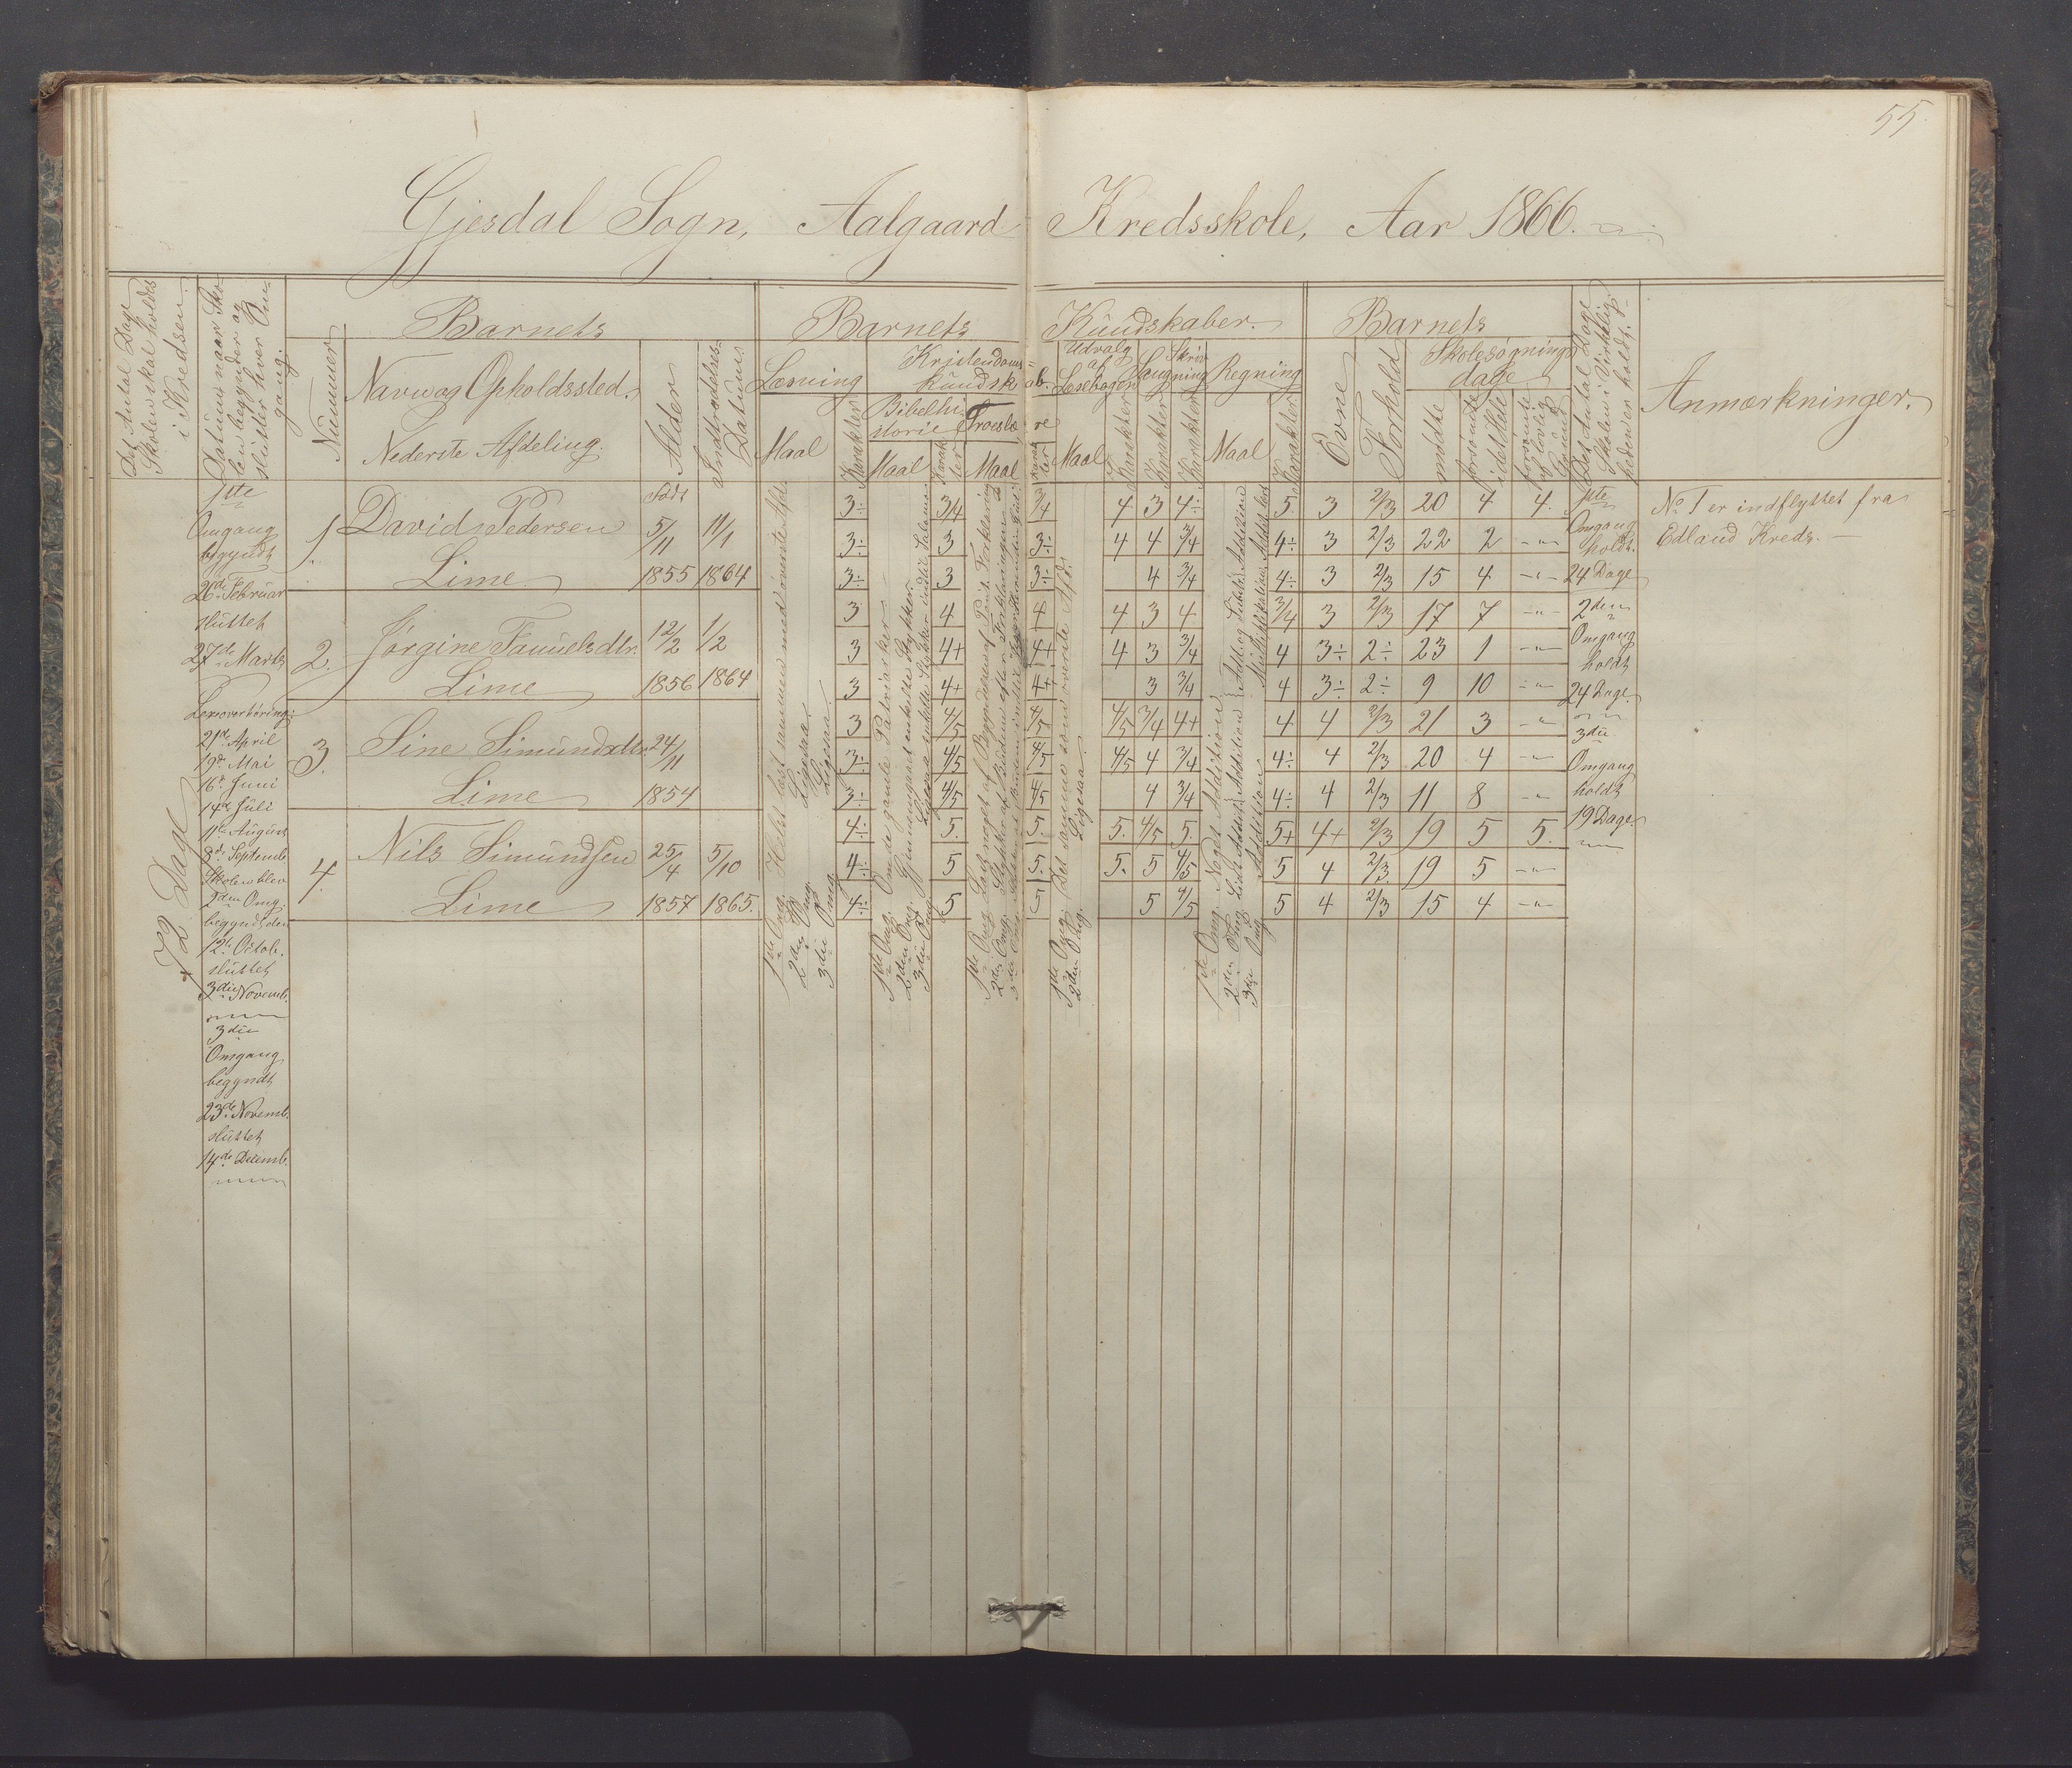 55.
Gjesdal Sogn, Aalgaard Kredsskole, Aar 1866.
Det Antal Dage
Skolen skal holdes
i Kredsen.
Datum naar Sko-
len begynder og
slutter hver Om-
gang.
Barnets
Nummer
Navn og Opholdssted.
Nederste Afdeling.
Alder
Indtrædelses-
Datum.
Barnets Kundskaber.
Læsning
Maal
Karakter
Kristendoms=
kundskab.
Bibelhi-
storie
Maal
Karak
ter
Troeslære
Maal
Karak
ter
Udvalg
af
Læsebogen
Maal
Karakter
Sang
Karakter
Skriv
ning
Karakter
Regning
Maal
Karakter
Barnets
Evne
Forhold
Skolesøgnings
dage
mødte
forsømte
i det Hele
forsømte
af lovlig
Grund
Det Antal Dage
Skolen i Virkelig-
heden er holdt.
Anmærkninger.
72 Dage
1ste
Omgang
begyndt
26de Februar
sluttet
27de Marts
Læseoverhøring:
21de April
19de Mai
16de Juni
14de Juli
11te August
8de Septemb.
Skolen blev
2den Omg.
begyndt den
12te Octob.
sluttet
3die Novemb.
3die
Omgang
begyndt
23de Novemb.
sluttet
14de Decemb.
1. David Pedersen Født 5/11 11/1
Lime 1855 1864
2. Jørgine Samuelsdtr. 12/2 1/2
Lime 1856 1864
3. Sine Simundsdtr. 24/11
Lime 1854
4. Nils Simundsen 25/4 5/10
Lime 1857 1865.
1ste Omg. Heelt læst sammen med øverste Afd.
2den Omg. Ligesaa
3die Omg. Ligesaa.
1ste Omg. Om de gamle Patriarker
2den Omg. Gjennemgaaet enkelte Stykker
3die Omg. Ligesaa enkelte Stykker indtil Salomo
1ste Omg. Læst noget af Begyndelsen af Pont. Forklaring
2den Omg. Stykket af Budene efter Forklaringen
1ste Omg. Det samme som øverste Afd.
2den Omg. Ligesaa.
1ste Omg. Noget Addition
2den Omg. Lidt Addit. Addition Add. og Subtr. Addition
3die Omg. Addition
3÷ 3/4 3/4 4 3 4÷ 5 3 2/3 20 4 4.
3÷ 3 3÷ 4 4 3/4 4÷ 3 2/3 22 2 -"-
3÷ 3 3÷ 4 3/4 4÷ 3 2/3 15 4 -"-
3 4 4 4 3 4 3/4 3 2/3 17 7 -"-
3 4+ 4+ 4 3 3/4 4 3÷ 2÷ 23 1 -"-
3 4+ 4+ 3 3/4 4 3÷ 2÷ 9 10 -"-
3 4/5 4/5 4/5 3/4 4+ 4 4 2/3 21 3 -"-
3÷ 4/5 4/5 4/5 4 3/4 4÷ 4 2/3 20 4 -"-
3÷ 4/5 4/5 4 3/4 4÷ 4 2/3 11 8 -"-
4÷ 5. 5. 5. 4/5 5. 5+ 4+ 2/3 19 5 5.
4÷ 5 5. 5. 5 4/5 5 4 2/3 19 5 -"-
4÷ 5 5 5 4/5 5 4 2/3 15 4 -"-
1ste
Omgang
holdt.
24 Dage
2den
Omgang
holdt
24 Dage.
3die
Omgang
holdt
19 Dage.
No 1 er indflyttet fra
Edland Kreds. —